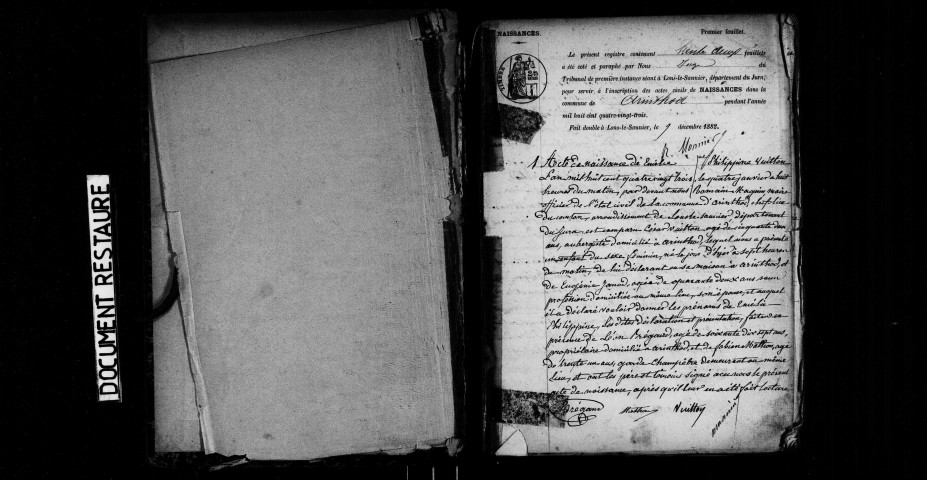 DOCUMENT RESTAURÉ
NAISSANCES.
Premier feuillet.
Le présent registre contenant trente deux feuillets
a été coté et paraphé par Nous Juge du
Tribunal de première instance séant à Lons-le-Saunier, département du Jura,
pour servir à l'inscription des actes civils de NAISSANCES dans la
commune de Arinthod pendant l'année
mil huit cent quatre-vingt-trois.
Fait double à Lons-le-Saunier, le 9 décembre 1882.
R. Monnier
1 Acte de naissance de Emélie Philippine Vuitton
L'an mil huit cent quatre vingt trois, le quatre janvier à huit
heures du matin, par devant nous Romain Maquin maire
officier de l'état civil de la commune d'arinthod, chef lieu
du canton, arrondissement de Lons le saunier, département
du Jura, est comparu César Vuitton, agé de cinquante deux
ans, aubergiste domicilié à arinthod, lequel nous a présenté
un enfant du sexe féminin, né le jour d'hyer à sept heures
du matin, de lui déclarant en sa maison à arinthod, et
de Eugénie Jamod, agée de quarante deux ans sans
profession domiciliée au même lieu, son épouse, et auquel
il a déclaré vouloir donner les prénoms de Emélie
Philippine, les dites déclaration et présentation, faites en
présence de Léon Brégand, agé de soixante dix sept ans,
propriétaire domicilié à arinthod, et de fabien Mathon, agé
de trente un ans, garde champêtre demeurant au même
lieu, et ont les père et témoins signé avec nous le présent
acte de naissance, après qu'il leur en a été fait lecture
Brégand Vuitton